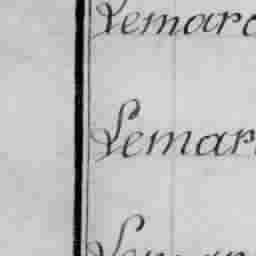 Lemarc
Lemar